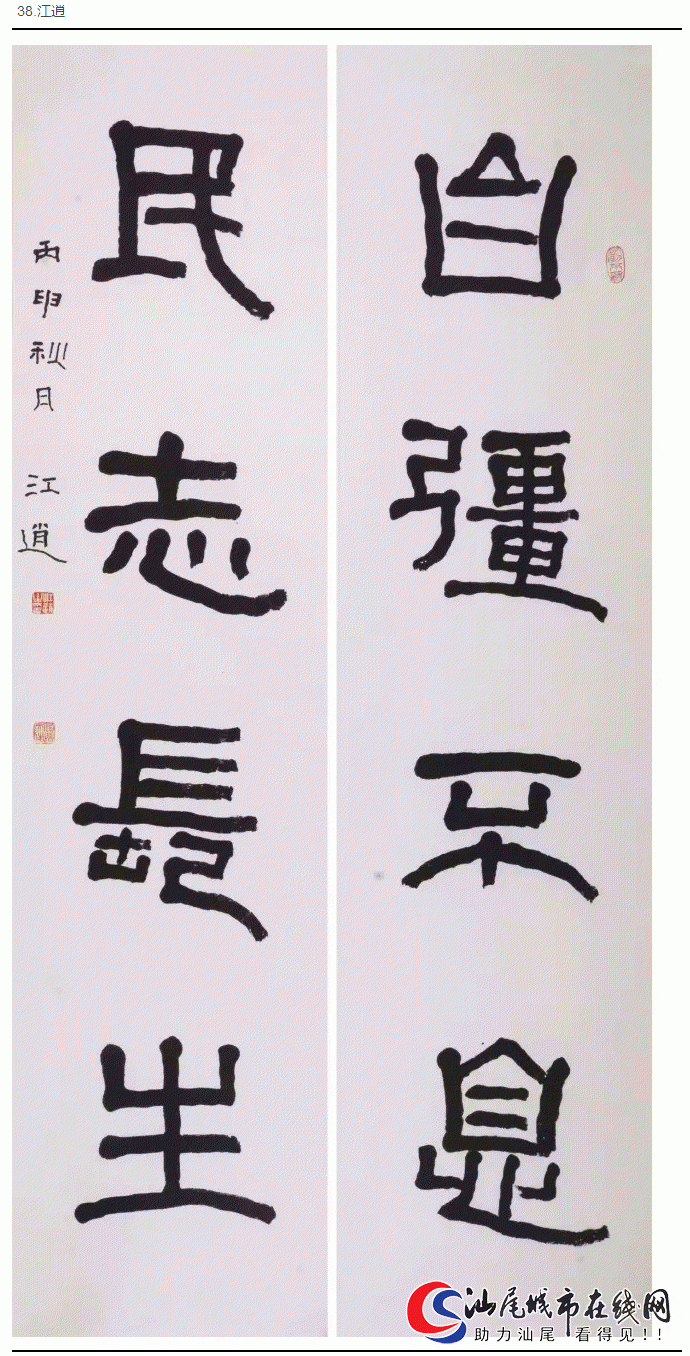 38.江逍
自彊不息
民志長生
丙申秋月 江逍
汕尾城市在线网
助力汕尾 看得见!!